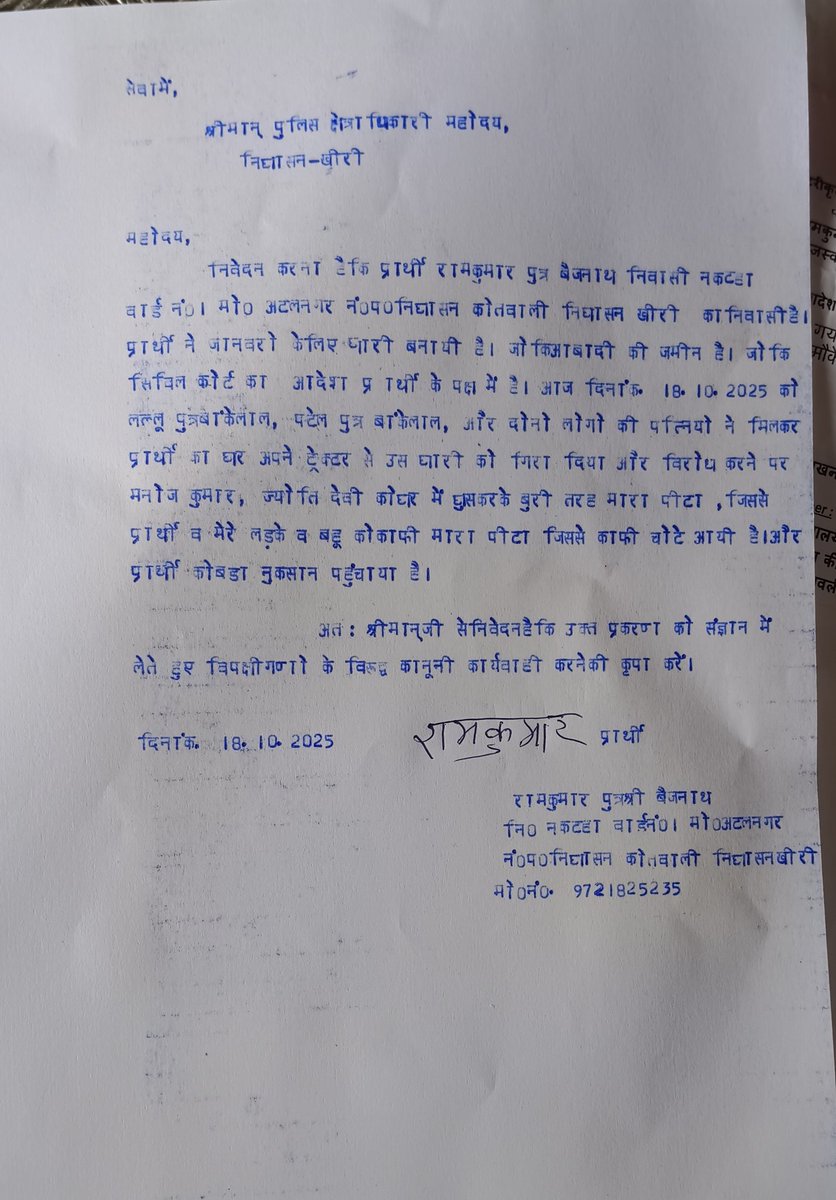 सेवामें,
श्रीमान् पुलिस क्षेत्राधिकारी महोदय,
निघासन-खीरी
महोदय,
निवेदन करना हैकि प्रार्थी रामकुमार पुत्र बैजनाथ निवासी नकटहा
वार्ड नं०। मो० अटलनगर नं०प०निघासन कोतवाली निघासन खीरी कानिवासीहै।
प्रार्थी ने जानवरो केलिए घारी बनायी है। जो किआबादी की जमीन है। जो कि
सिविल कोर्ट का आदेश प्रार्थी के पक्ष में है। आज दिनांक. 18.10.2025 को
लल्लू पुत्रबांकेलाल, पटेल पुत्र बांकेलाल, और दोनो लोगों की पत्नियो ने मिलकर
प्रार्थी का घर अपने ट्रेक्टर से उस घारी को गिरा दिया और विरोध करने पर
मनोज कुमार, ज्योति देवी कोघर में घुसकरके बुरी तरह मारा पीटा ,जिससे
प्रार्थी व मेरे लड़के व बहू कोकाफी मारा पीटा जिससे काफी चोटे आयी है।और
प्रार्थी कोबडा नुकसान पहुंचाया है।
अत: श्रीमान्जी सेनिवेदनहैकि उक्त प्रकरण को संज्ञान में
लेते हुए विपक्षीगणो के विरूद्ध कानूनी कार्यवाही करनेकी कृपा करें।
दिनांक. 18.10.2025 रामकुमार प्रार्थी
रामकुमार पुत्रश्री बैजनाथ
नि० नकटहा वार्डनं०। मो०अटलनगर
नं०प०निघासन कोतवाली निघासनखीरी
मो०नं०. 9721825235